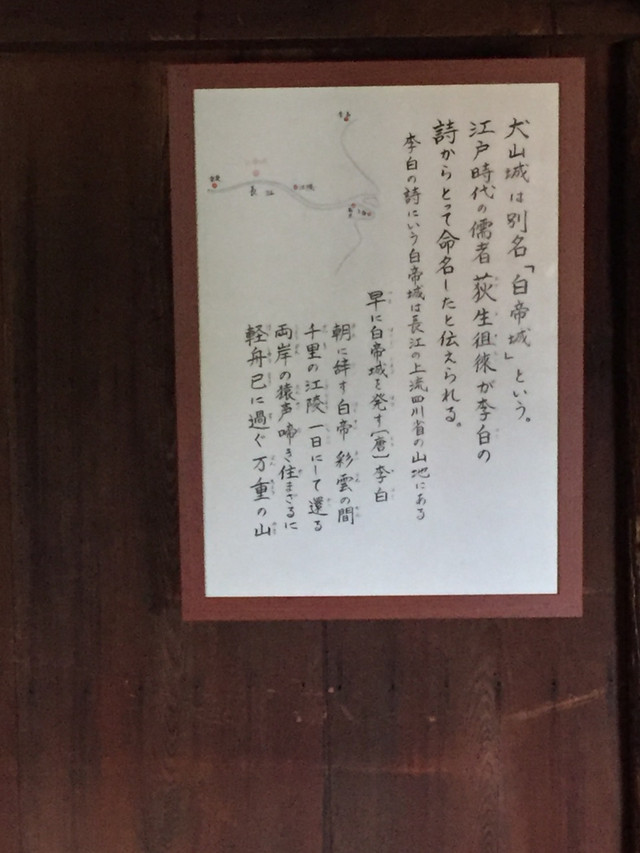 犬山城は別名「白帝城」という。
江戸時代の儒者 荻生徂徠が李白の
詩からとって命名したと伝えられる。
李白の詩にいう白帝城は長江の上流四川省の山地にある
早に白帝城を発す［唐］李白
朝に辞す白帝 彩雲の間
千里の江陵 一日にして還る
両岸の猿声啼き住まざるに
軽舟已に過ぐ 万重の山
長江